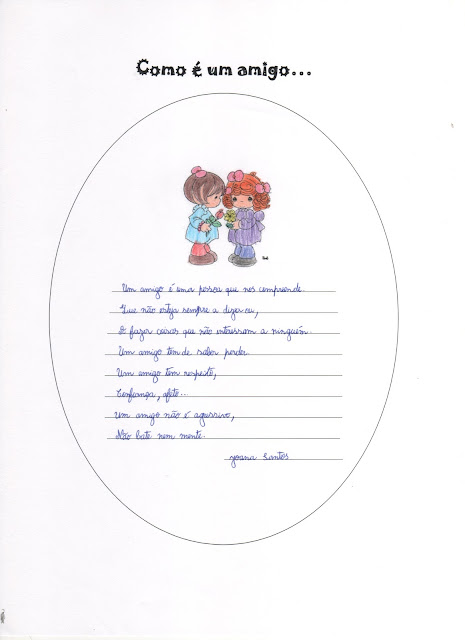 Como é um amigo...
Um amigo é uma pessoa que nos compreende.
Que não esteja sempre a dizer eu,
O fazer coisas que não intressam a ninguém.
Um amigo tem de saber perder.
Um amigo tem respeito,
Confiança, afeto...
Um amigo não é agressivo,
Não bate nem mente.
Joana Santos